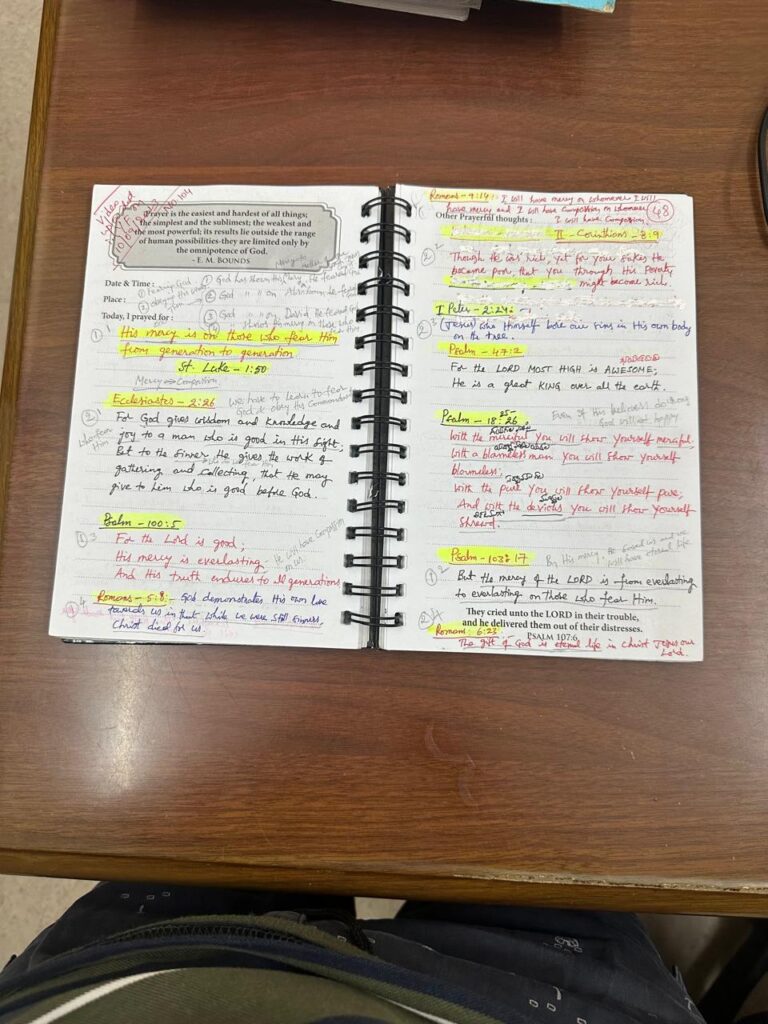 Video
Prayer is the easiest and hardest of all things;
the simplest and the sublimest; the weakest and
the most powerful; its results lie outside the range
of human possibilities-they are limited only by
the omnipotence of God.
- E. M. BOUNDS
Date & Time :
Place :
Today, I prayed for :
① Fearing God
① God has shown His
② God " " on Abraham, he feared
③ God " " on David He feared
His mercy is on those who fear Him
from generation to generation
St. Luke - 1:50
Mercy → Compassion
We have to learn to fear
God & obey His Commandments
Ecclesiastes - 2:26
For God gives wisdom and knowledge and
joy to a man who is good in His sight;
But to the sinner He gives the work of
gathering and collecting, that He may
give to him who is good before God.
Psalm - 100:5
For the Lord is good;
His mercy is everlasting.
And His truth endures to all generations
He will have Compassion
on us.
Romans - 5:8:- God demonstrates His own love
towards us in that while we were still sinners,
Christ died for us.
Romans - 9:14: I will have mercy on whomever I will
have mercy and I will have Compassion on whomever
I will have Compassion.
48
Other Prayerful thoughts :
II - Corinthians - 8:9
Though He was rich, yet for your sakes He
became poor, that you through His Poverty
might become rich.
I Peter - 2:24:-
(Jesus) who Himself bore our sins in His own body
on the tree.
Psalm - 47:2
For the LORD MOST HIGH is AWESOME;
He is a great KING over all the earth.
Psalm - 18:25-26
With the merciful You will show Yourself merciful,
With a blameless man You will show Yourself
blameless;
With the pure You will show Yourself pure,
And with the devious You will show Yourself
Shrewd.
Psalm - 103:17
By His mercy, He saved us and we
will have eternal life
But the mercy of the LORD is from everlasting
to everlasting on those who fear Him.
They cried unto the LORD in their trouble,
and he delivered them out of their distresses.
PSALM 107:6
Romans: 6:23
The gift of God is eternal life in Christ Jesus our
Lord.